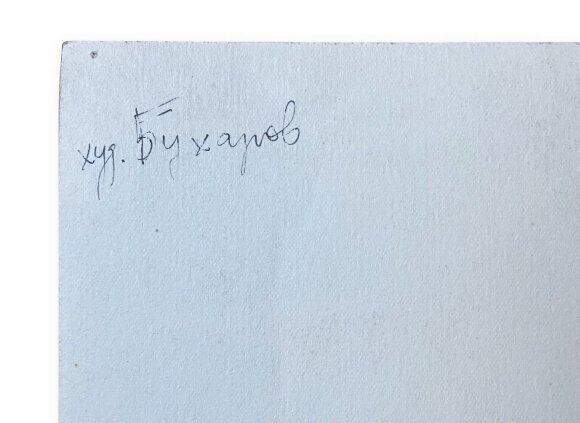 худ. Бухаров